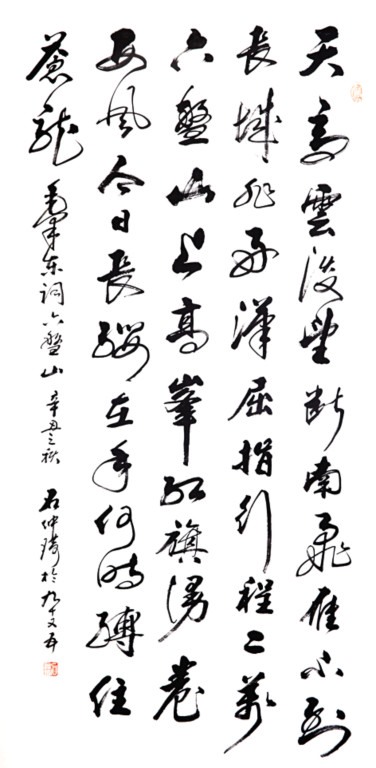 天高雲淡望断南飛雁不到
長城非好漢屈指行程二萬
六盤山上高峯紅旗漫卷
西風今日長纓在手何時縛住
蒼龍 毛澤东詞六盤山 辛丑之秋